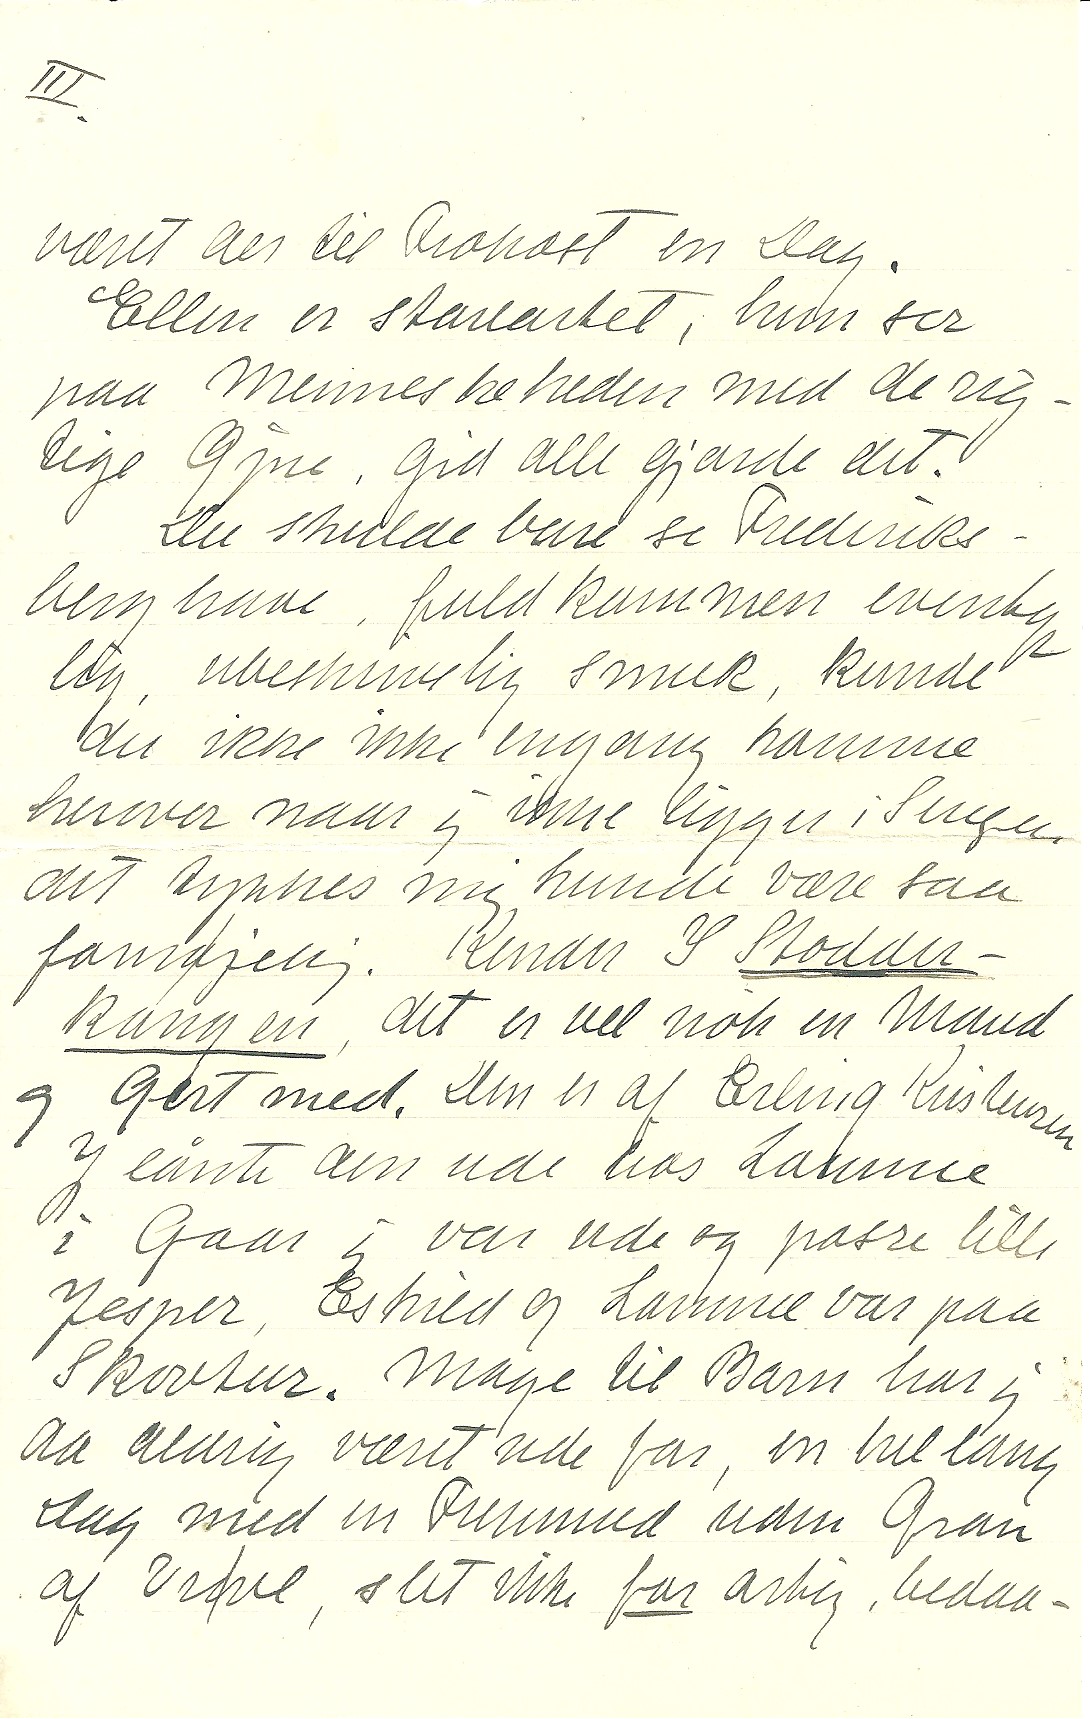 III.
været der til Frokost en Dag.
Ellen er storartet, hun ser
paa Menneskeheden med de rig-
tige Øjne, gid alle gjorde det.
Du skulde bare se Frederiks-
berg have, fuldkommen eventyr
lig, ubeskrivelig smuk, kunde
du ikke ikke engang komme
herover naar jeg ikke ligger i Sengen
det synes mig kunde være saa
fornøjelig. Kender I Stodder-
kongen, det er vel nok en Mand
og Gert med. Den er af Erling Kristensen
Jeg lånte den ude hos Lomme
i Gaar jeg var ude og passe lille
Jesper, Eskild og Lomme var paa
Skovtur. Mage til Barn har jeg
da aldrig været ude for, en hel lang
Dag med en Fremmed uden Gran
af Vrøvl, slet ikke for artig, bedaa-